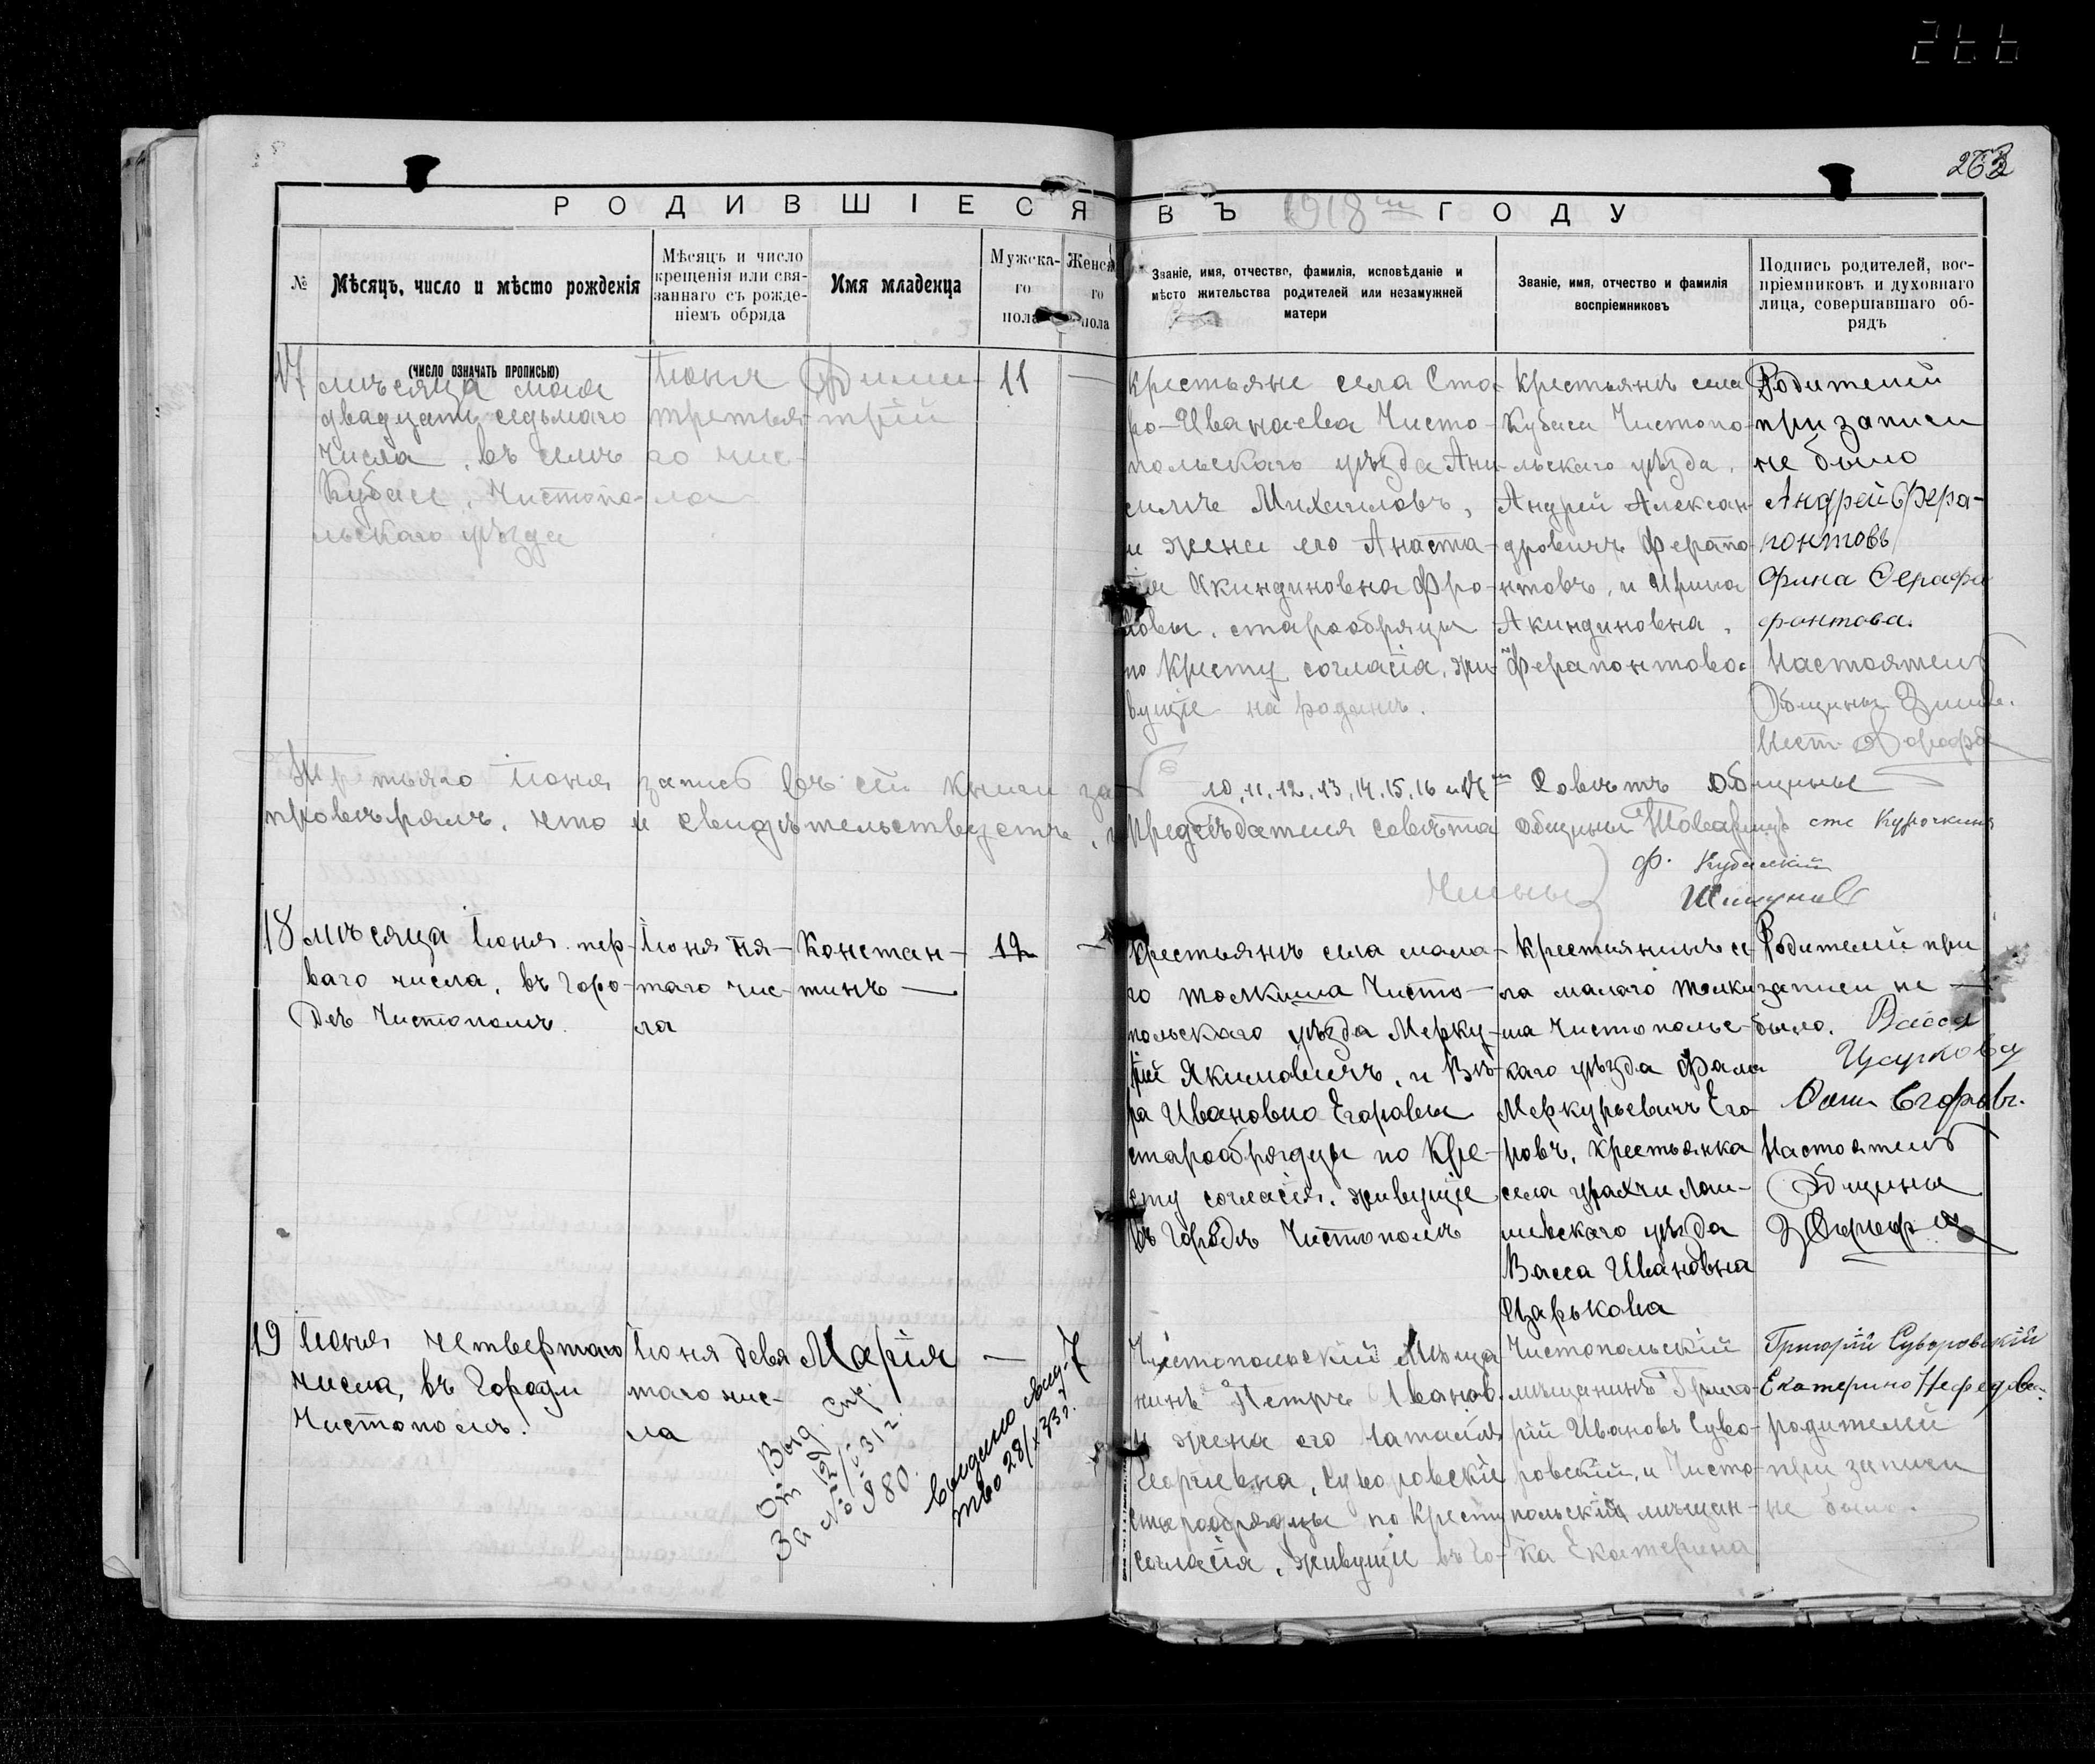 266
263
РОДИВШІЕСЯ ВЪ 1918 ГОДУ
№
Мѣсяцъ, число и мѣсто рожденія
Мѣсяцъ и число
крещенія или свя-
заннаго съ рожде-
ніемъ обряда
Имя младенца
Мужска-
го
пола
Женска
го
пола
Званіе, имя, отчество, фамилія, исповѣданіе и
мѣсто жительства родителей или незамужней
матери
Званіе, имя, отчество и фамилія
воспріемниковъ
Подпись родителей, вос-
пріемниковъ и духовнаго
лица, совершавшаго об-
рядъ
(число означать прописью)
17
мѣсяца мая
двадцать седьмого
числа, въ селѣ
Кубасе, Чистопо-
льскаго уѣзда
Іюня
третья-
го чис-
ла
Дими-
трій
11
—
крестьяне села Ста-
ро-Иванаева Чисто-
польскаго уѣзда
Михаиловъ,
и жена его Анаста-
Акиндиновна Фро-
ловы, старообрядцы
по Кресту согласія, жи-
вущіе на родинѣ.
крестьянъ села
Кубаса Чистопо-
льскаго уѣзда,
Андрей Алексан-
дровичъ Ферапо-
нтовъ, и Ирина
Акиндиновна,
Ферапонтова
Родителей
при записи
не было
Андрей Фера-
понтовъ
Настоятель
Общины
Третьяго Іюня запись въ сей книги за № 10, 11, 12, 13, 14, 15, 16 и 17 Совѣтъ Общины
провѣрялъ, что и свидѣтельствуетъ, Предсѣдателя совѣта общины
Члены
18
мѣсяца Іюня пер-
ваго числа, въ Горо-
дѣ Чистополѣ.
Іюня пя-
таго чис-
ла
Констан-
тинъ —
12
—
Крестьянъ села мала-
го толкиша Чисто-
польскаго уѣзда Мерку-
рій Якимовичъ, и Вѣ-
ра Ивановна Егоровы
старообрядцы по Кре-
сту согласія, живущіе
въ Городѣ Чистополѣ
Крестьянинъ се-
ла малаго толки-
ша Чистопольс-
каго уѣзда
Меркурьевичъ Его-
ровъ, крестьянка
села Лаи-
шевскаго уѣзда
Васса Ивановна
Царькова
Родителей при
записи не —
было. Васса
Егоровъ.
Настоятель
Общины
19
Іюня четвертаго
числа, въ Городи
Чистополѣ.
Іюня девя
таго чис-
ла
Марія
—
7
Выд. спр.
От 12/
За № 
980.
Выдано свид-
тво 28/X 33 г.
Чистопольскій Мѣща
нинъ Петръ Иванов.
и жена его Наталія
Георгіевна, Суворовскіе
старообрядцы по Кресту
согласія, живущіе въ Го-
Чистопольскій
мѣщанинъ Григо-
рій Ивановъ Суво-
ровскій, и Чисто-
польскій мѣщан-
ка Екатерина
Григорій Суворовскій
Екатерина Нефедова.
родителей
при записи
не было.